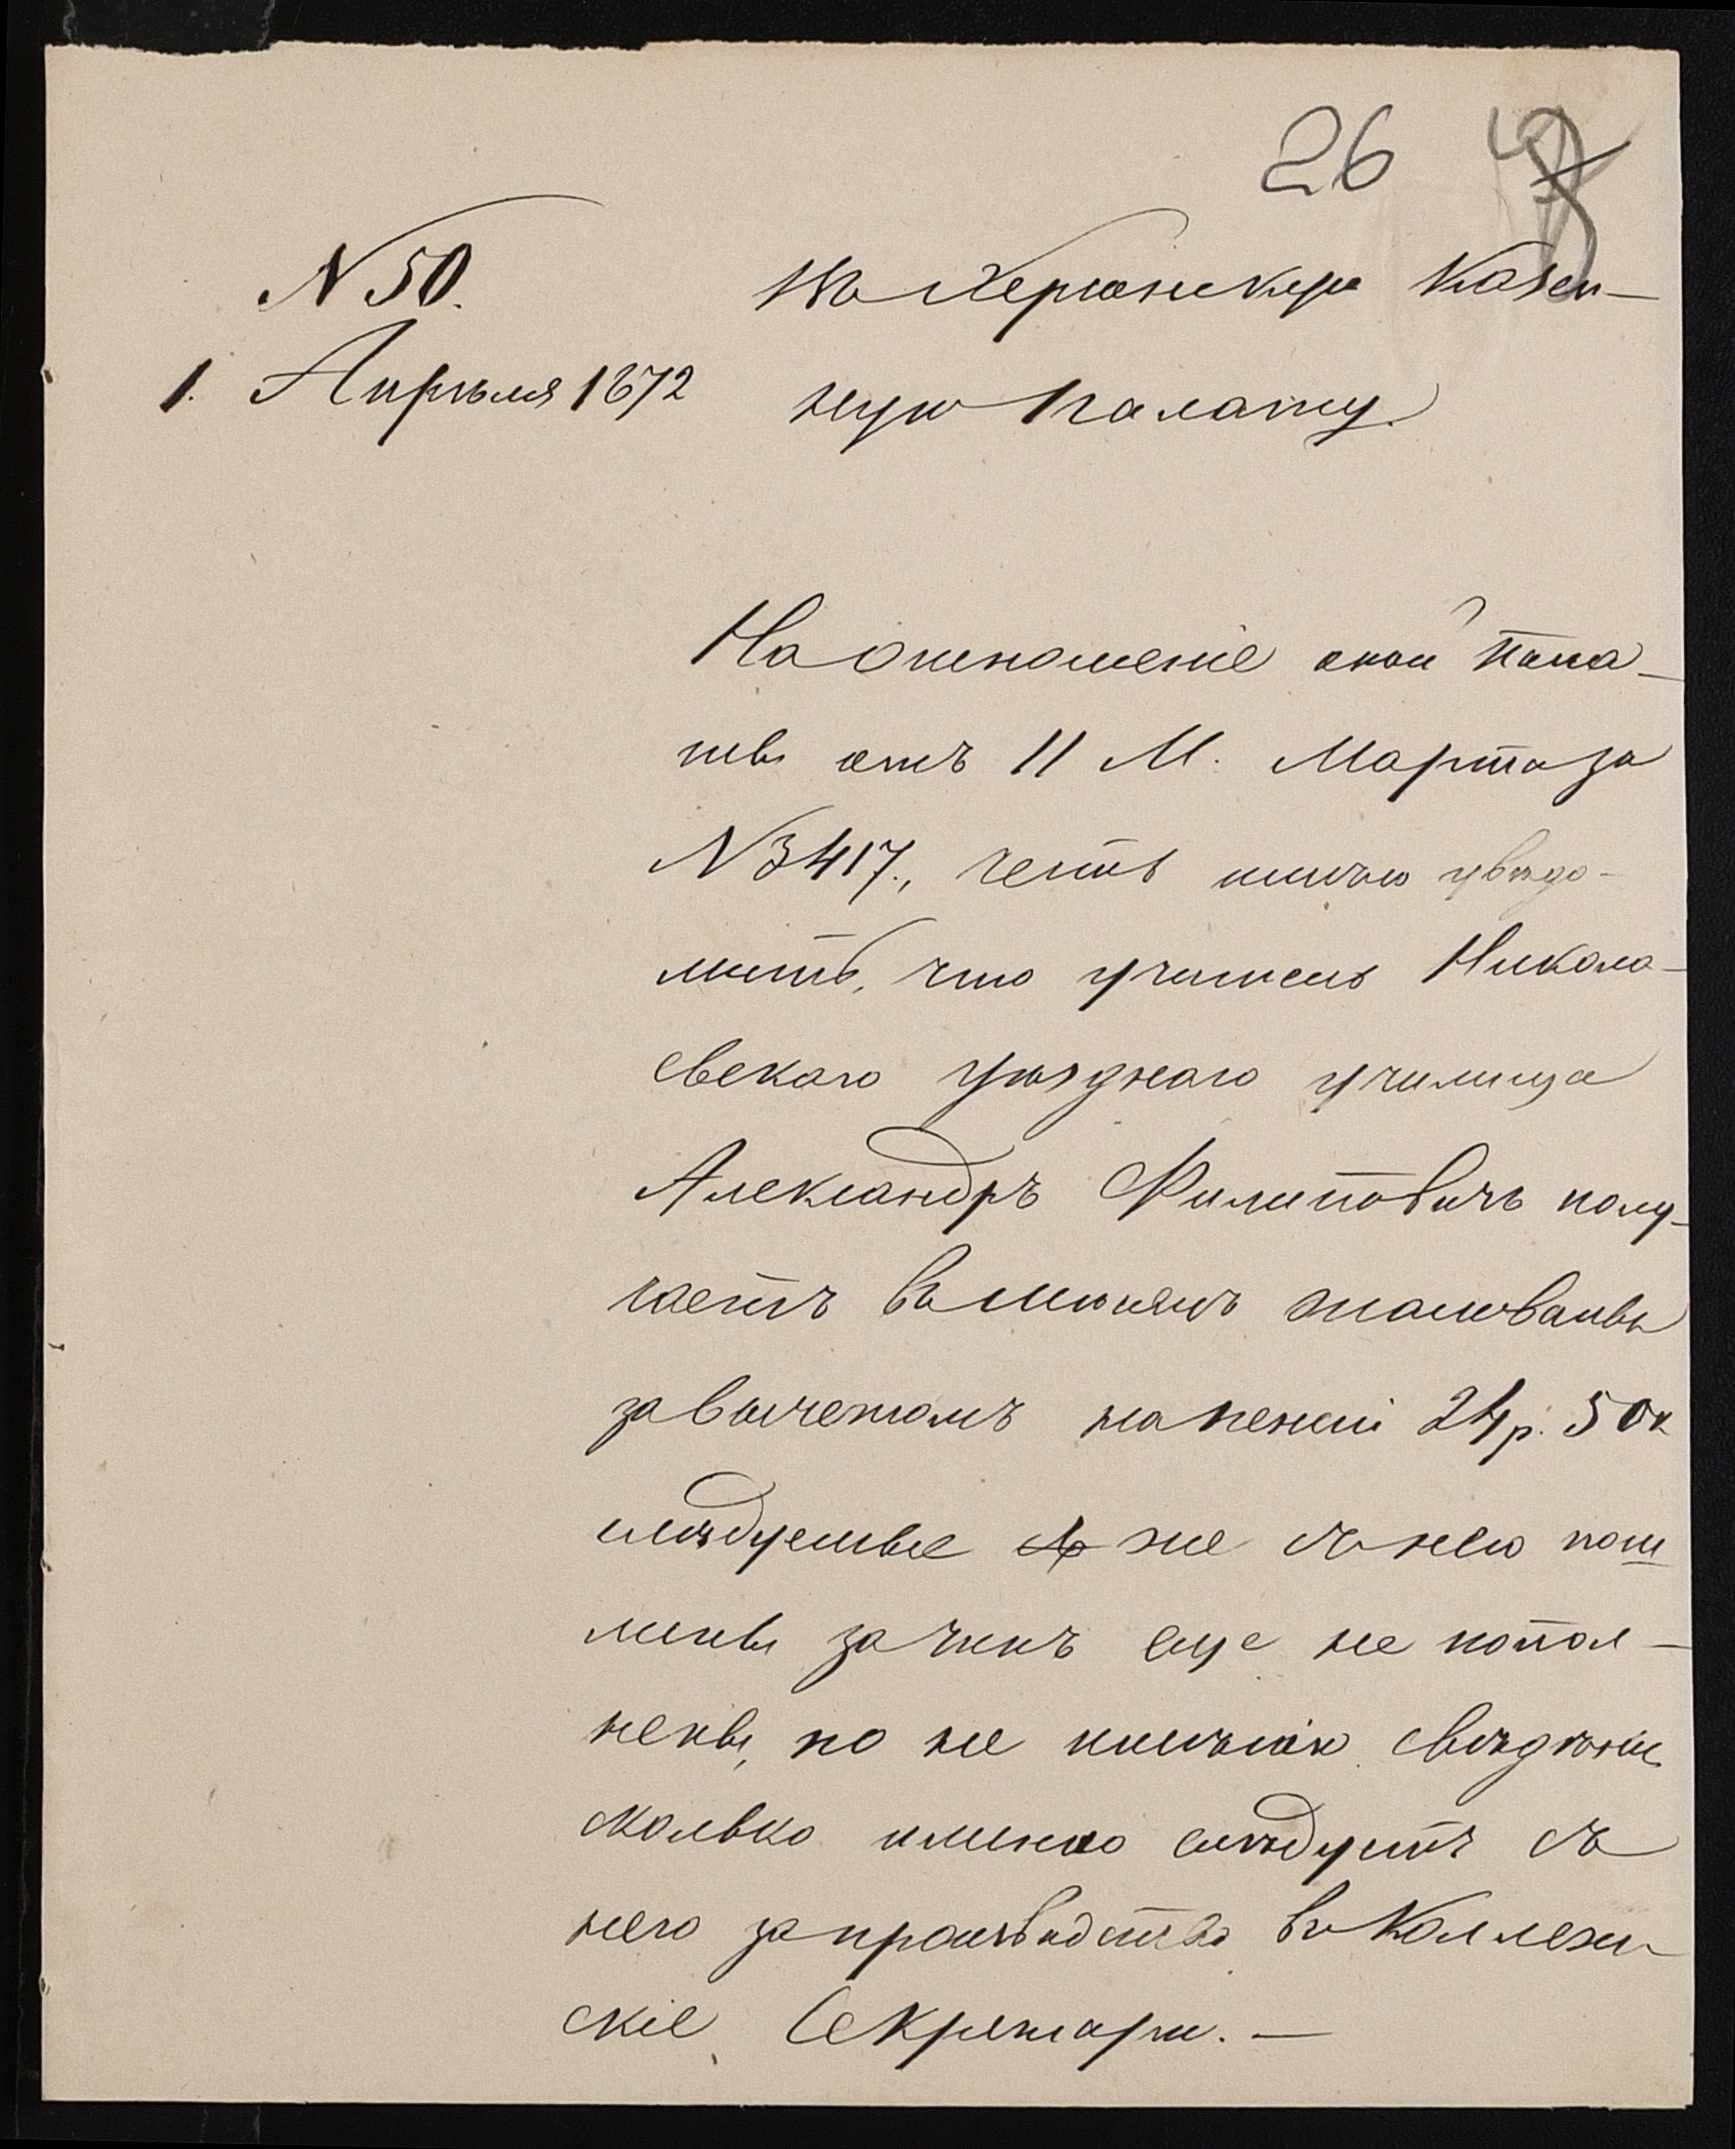 26
N 50.
1. Апрѣля 1872
Въ Херсонскую Казен-
ную Палату.
На отношеніе оной Пала-
ты отъ 11 М. Марта за
N 3417., честь имѣю увѣдо-
мить, что учитель Никола-
евскаго уѣзднаго училища
Александръ Филиповичъ полу-
чаетъ въ мѣсяцъ жалованья
за вычетомъ на пенсіи 24 р. 50 к
слѣдуемые же съ него пош
лины за чинъ еще не попол-
нены, по не имѣнію свѣдѣній
сколько именно слѣдуетъ съ
него за производство въ Коллеж-
скіе Секретари. —